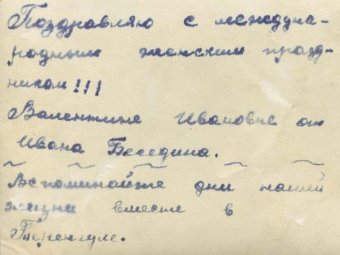 Поздравляю с междуна-
родным женским празд-
ником!!!
Валентине Ивановне от
Ивана Беседина.
Вспоминайте дни нашей
жизни вместе в